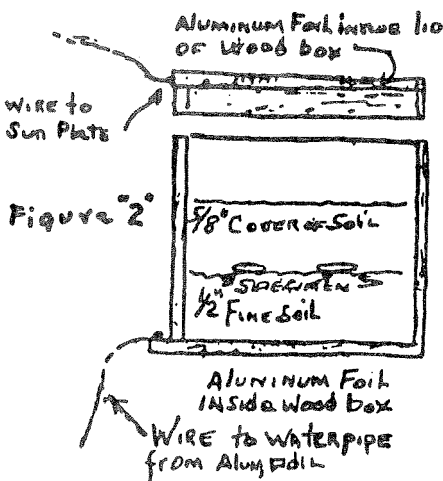 Aluminum Foil inside lid
of Wood box
WIRE to
Sun Plate
Figure "2"
5/8" COVER of SOIL
SPECIMEN
1/2" FINE SOIL
ALUMINUM FOIL
INSIDE Wood box
WIRE to WATERPIPE
from Alum Foil